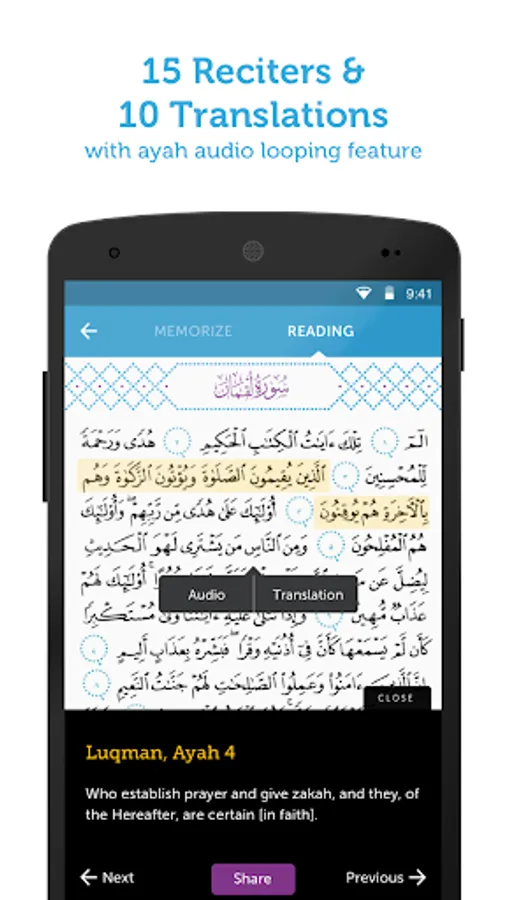 15 Reciters &
10 Translations
with ayah audio looping feature
9:41
MEMORIZE READING
سُورَةُ لُقْمَان
الٓمٓ ١ تِلْكَ ءَايَٰتُ ٱلْكِتَٰبِ ٱلْحَكِيمِ ٢ هُدًى وَرَحْمَةً
لِّلْمُحْسِنِينَ ٣ ٱلَّذِينَ يُقِيمُونَ ٱلصَّلَوٰةَ وَيُؤْتُونَ ٱلزَّكَوٰةَ وَهُم
بِٱلْءَاخِرَةِ هُمْ يُوقِنُونَ ٤ أُو۟لَٰٓئِكَ عَلَىٰ هُدًى مِّن رَّبِّهِمْ ۖ وَأُو۟لَٰٓئِكَ
هُمُ ٱلْمُفْلِحُونَ ٥ وَمِنَ ٱلنَّاسِ مَن يَشْتَرِى لَهْوَ ٱلْحَدِيثِ
لِيُضِلَّ عَن أُو۟لَٰٓئِكَ لَهُمْ
Audio Translation
عَذَابٌ مُّهِينٌ وَإِذَا تُتْلَىٰ عَلَيْهِ ءَايَٰتُنَا وَلَّىٰ مُسْتَكْبِرًا
كَأَن لَّمْ يَسْمَعْهَا كَأَنَّ فِىٓ أُذُنَيْهِ وَقْرًا ۖ فَبَشِّرْهُ بِعَذَابٍ أَلِيمٍ ٧
إِنَّ ٱلَّذِينَ ءَامَنُوا۟ وَعَمِلُوا۟ ٱلصَّٰلِحَٰتِ لَهُمْ جَنَّٰتُ ٱلنَّعِيمِ ٨
CLOSE
Luqman, Ayah 4
Who establish prayer and give zakah, and they, of
the Hereafter, are certain [in faith].
← Next Share Previous →